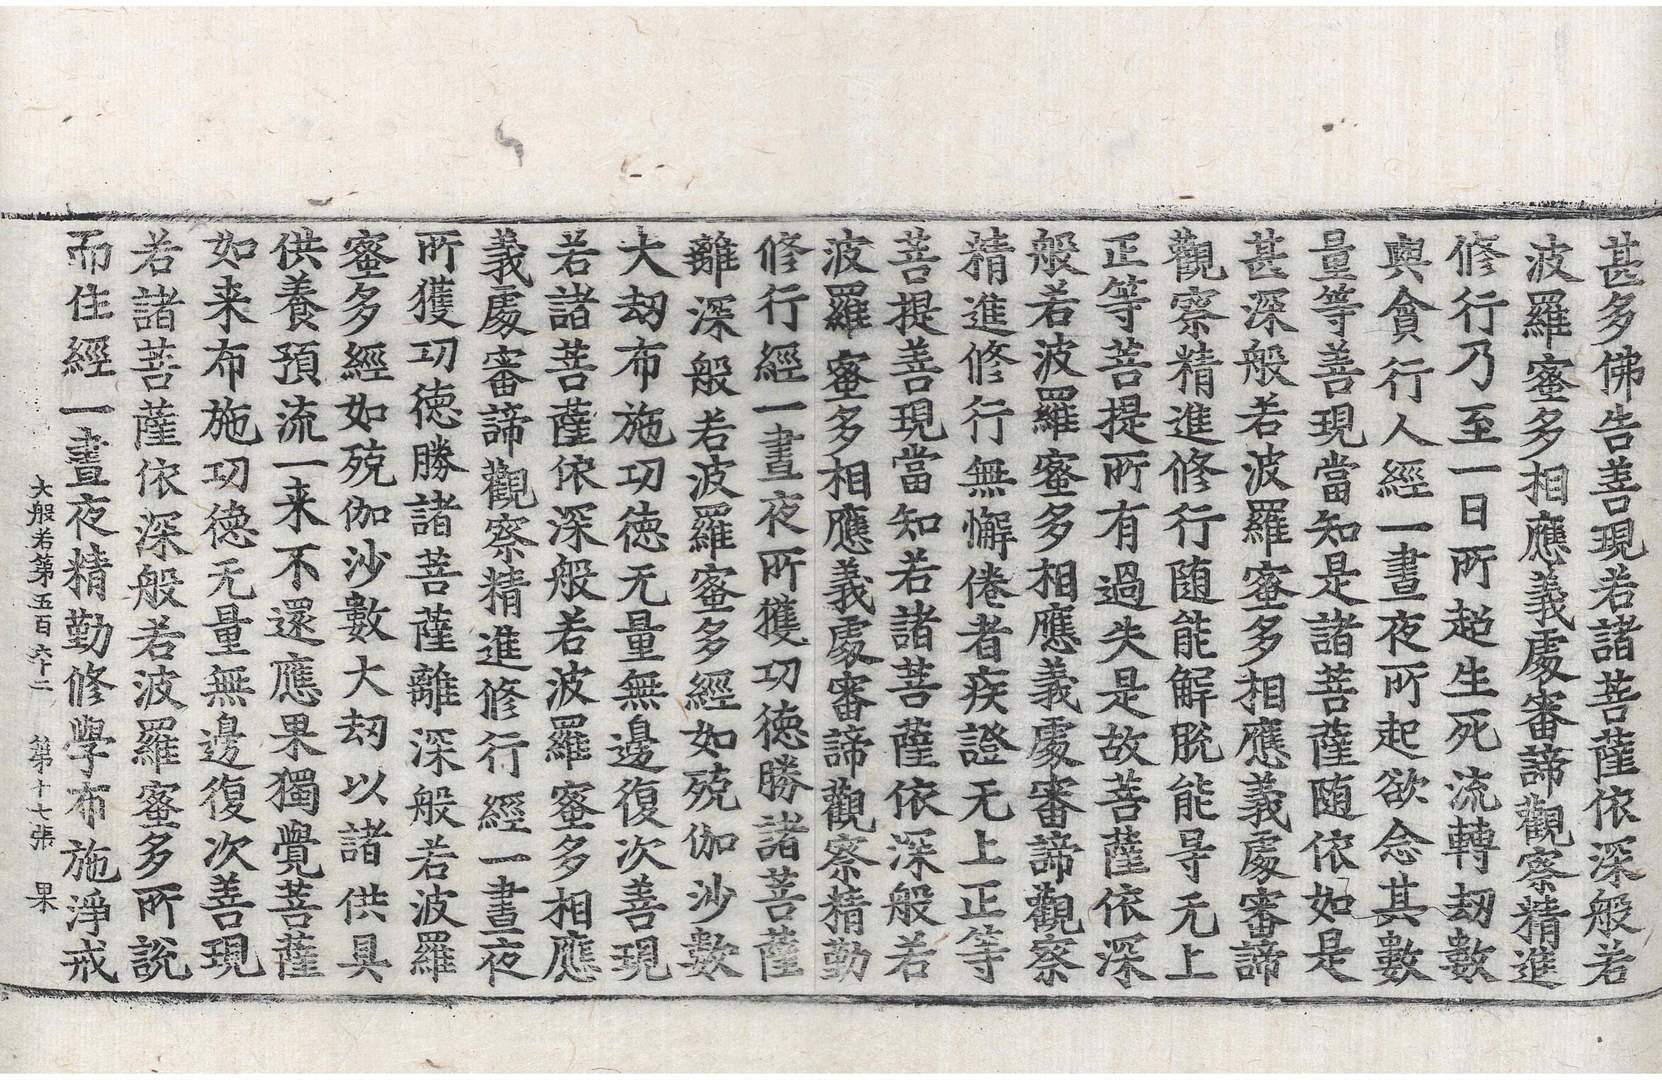 甚多佛告善現若諸菩薩依深般若
波羅蜜多相應義處審諦觀察精進
修行乃至一日所超生死流轉劫數
與貪行人經一晝夜所起欲念其數
量等善現當知是諸菩薩随依如是
甚深般若波羅蜜多相應義處審諦
觀察精進修行随能解脫能㝵无上
正等菩提所有過失是故菩薩依深
般若波羅蜜多相應義處審諦觀察
精進修行無懈倦者疾證无上正等
菩提善現當知若諸菩薩依深般若
波羅蜜多相應義處審諦觀察精勤
修行經一晝夜所獲功德勝諸菩薩
離深般若波羅蜜多經如殑伽沙數
大劫布施功德无量無邊復次善現
若諸菩薩依深般若波羅蜜多相應
義處審諦觀察精進修行經一晝夜
所獲功德勝諸菩薩離深般若波羅
蜜多經如殑伽沙數大劫以諸供具
供養預流一来不還應果獨覺菩薩
如来布施功德无量無邊復次善現
若諸菩薩依深般若波羅蜜多所說
而住經一晝夜精勤修學布施淨戒
大般若第五百六十二 第十七張 果